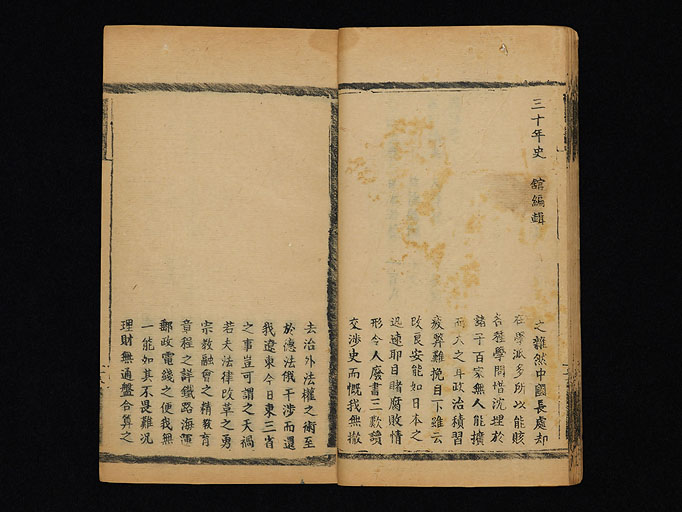 三十年史 館編輯
之雜然中國長處却
在學派多所以能賅
各種學問惜沈埋於
諸子百家無人能擴
而大之耳政治積習
疲弊難挽目下雖云
改良安能如日本之
迅速耶日睹腐敗情
形令人廢書三歎讀
交渉史而慨我無撤
去治外法權之術至
於德法俄干渉而還
我遼東今日東三省
之事豈可謂之天禍
若夫法律改革之勇
宗教融會之精教育
章程之詳鐵路海陸
郵政電綫之便我無
一能如其不畏難况
理財無通盤合算之